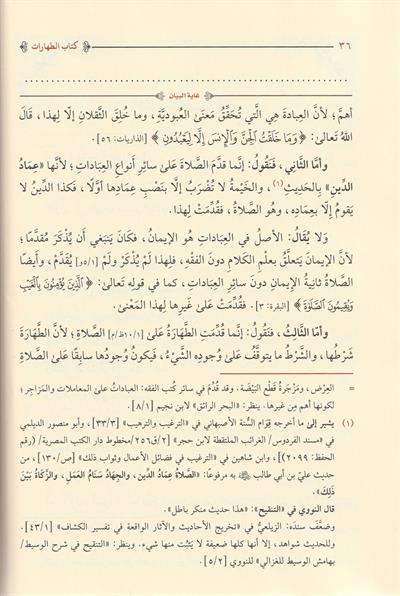 ٣٦ كتاب الطهارات
غاية البيان
أهمُّ؛ لأنَّ العِبادةَ هِي الَّتي تُحقِّقُ مَعنَى العُبوديَّةِ، وما خُلِقَ الثَّقلانِ إلَّا لِهذا، قَالَ
اللهُ تَعالى: ﴿وَمَا خَلَقْتُ الْجِنَّ وَالْإِنسَ إِلَّا لِيَعْبُدُونِ﴾ [الذاريات: ٥٦].
وأمَّا الثَّاني، فَنَقُولُ: إنَّما قدَّمَ الصَّلاةَ عَلى سائِرِ أَنواعِ العِباداتِ؛ لأنَّها «عِمادُ
الدِّينِ» بِالحَديثِ(١)، والخَيْمةُ لا تُضرَبُ إلَّا بنَصْبِ عِمادِها أوَّلًا، فكَذا الدِّينُ لا
يَقومُ إلَّا بعِمادِه، وهُو الصَّلاةُ، فقُدِّمَتْ لِهذا.
وَلا يُقالُ: الأصلُ في العِباداتِ هو الإيمانُ، فكانَ يَنبَغي أن يُذكَرَ مُقدَّمًا؛
لأنَّ الإيمانَ يَتعلَّقُ بعِلْمِ الكَلامِ دونَ الفقْهِ، فلِهذا لَمْ يُذكَرْ ولَمْ [١/٥و] يُقدَّمْ، وأيضًا
الصَّلاةُ ثانِيةُ الإيمانِ دونَ سائرِ العِباداتِ، كما في قولِه تَعالَى: ﴿الَّذِينَ يُؤْمِنُونَ بِالْغَيْبِ
وَيُقِيمُونَ الصَّلَاةَ﴾ [البقرة: ٣]. فقُدِّمَتْ عَلى غَيرِها لِهذا المَعنَىٰ.
وأمَّا الثَّالثُ، فنَقُولُ: إنَّما قُدِّمَتِ الطَّهارَةُ عَلَى [١/١٠ظ/م] الصَّلاةِ؛ لأنَّ الطَّهارَةَ
شَرْطُها، والشَّرْطُ ما يَتوقَّفُ عَلى وُجودِه الشَّيْءُ، فَيكونُ وُجودُها سابِقًا عَلى الصَّلاةِ
= العِرْض، ومَزْجَرةُ قَطْعِ البَيْضَة. وقد قُدِّمَ في سائرِ كُتبِ الفقه: العباداتُ على المعاملات والمَزاجِر؛
لكونها أهم مِن غيرها. ينظر: «البحر الرائق» لابن نجيم [٨/١].
(١) يشير إلى ما أخرجه قِوَام السُّنة الأصبهاني في «الترغيب والترهيب» [٣٣/٣]، وأبو منصور الديلمي
في «مسند الفردوس/ الغرائب الملتقطة لابن حجر» [٢/ق٢٥٦/مخطوط دار الكتب المصرية/ (رقم
الحفظ: ٢٠٩٩)]، وابن شاهين في «الترغيب في فضائل الأعمال وثواب ذلك» [ص/١٣٠]، من
حديث عليّ بن أبي طالب ﵁ به مرفوعًا: «الصَّلَاةُ عِمَادُ الدِّينِ، والجِهَادُ سَنَامُ العَمَلِ، والزَّكَاةُ بَيْنَ
ذَلِكَ».
قال النووي في «التنقيح»: «هذا حديث منكر باطل».
وضعَّفَ سندَه: الزيلعيُّ في «تخريج الأحاديث والآثار الواقعة في تفسير الكشاف» [٤٣/١].
وللحديث شواهد، إلا أنها كلها ضعيفة لا يَثْبت منها شيء. وينظر: «التنقيح في شرح الوسيط/
بهامش الوسيط للغزالي» للنووي [٥/٢].